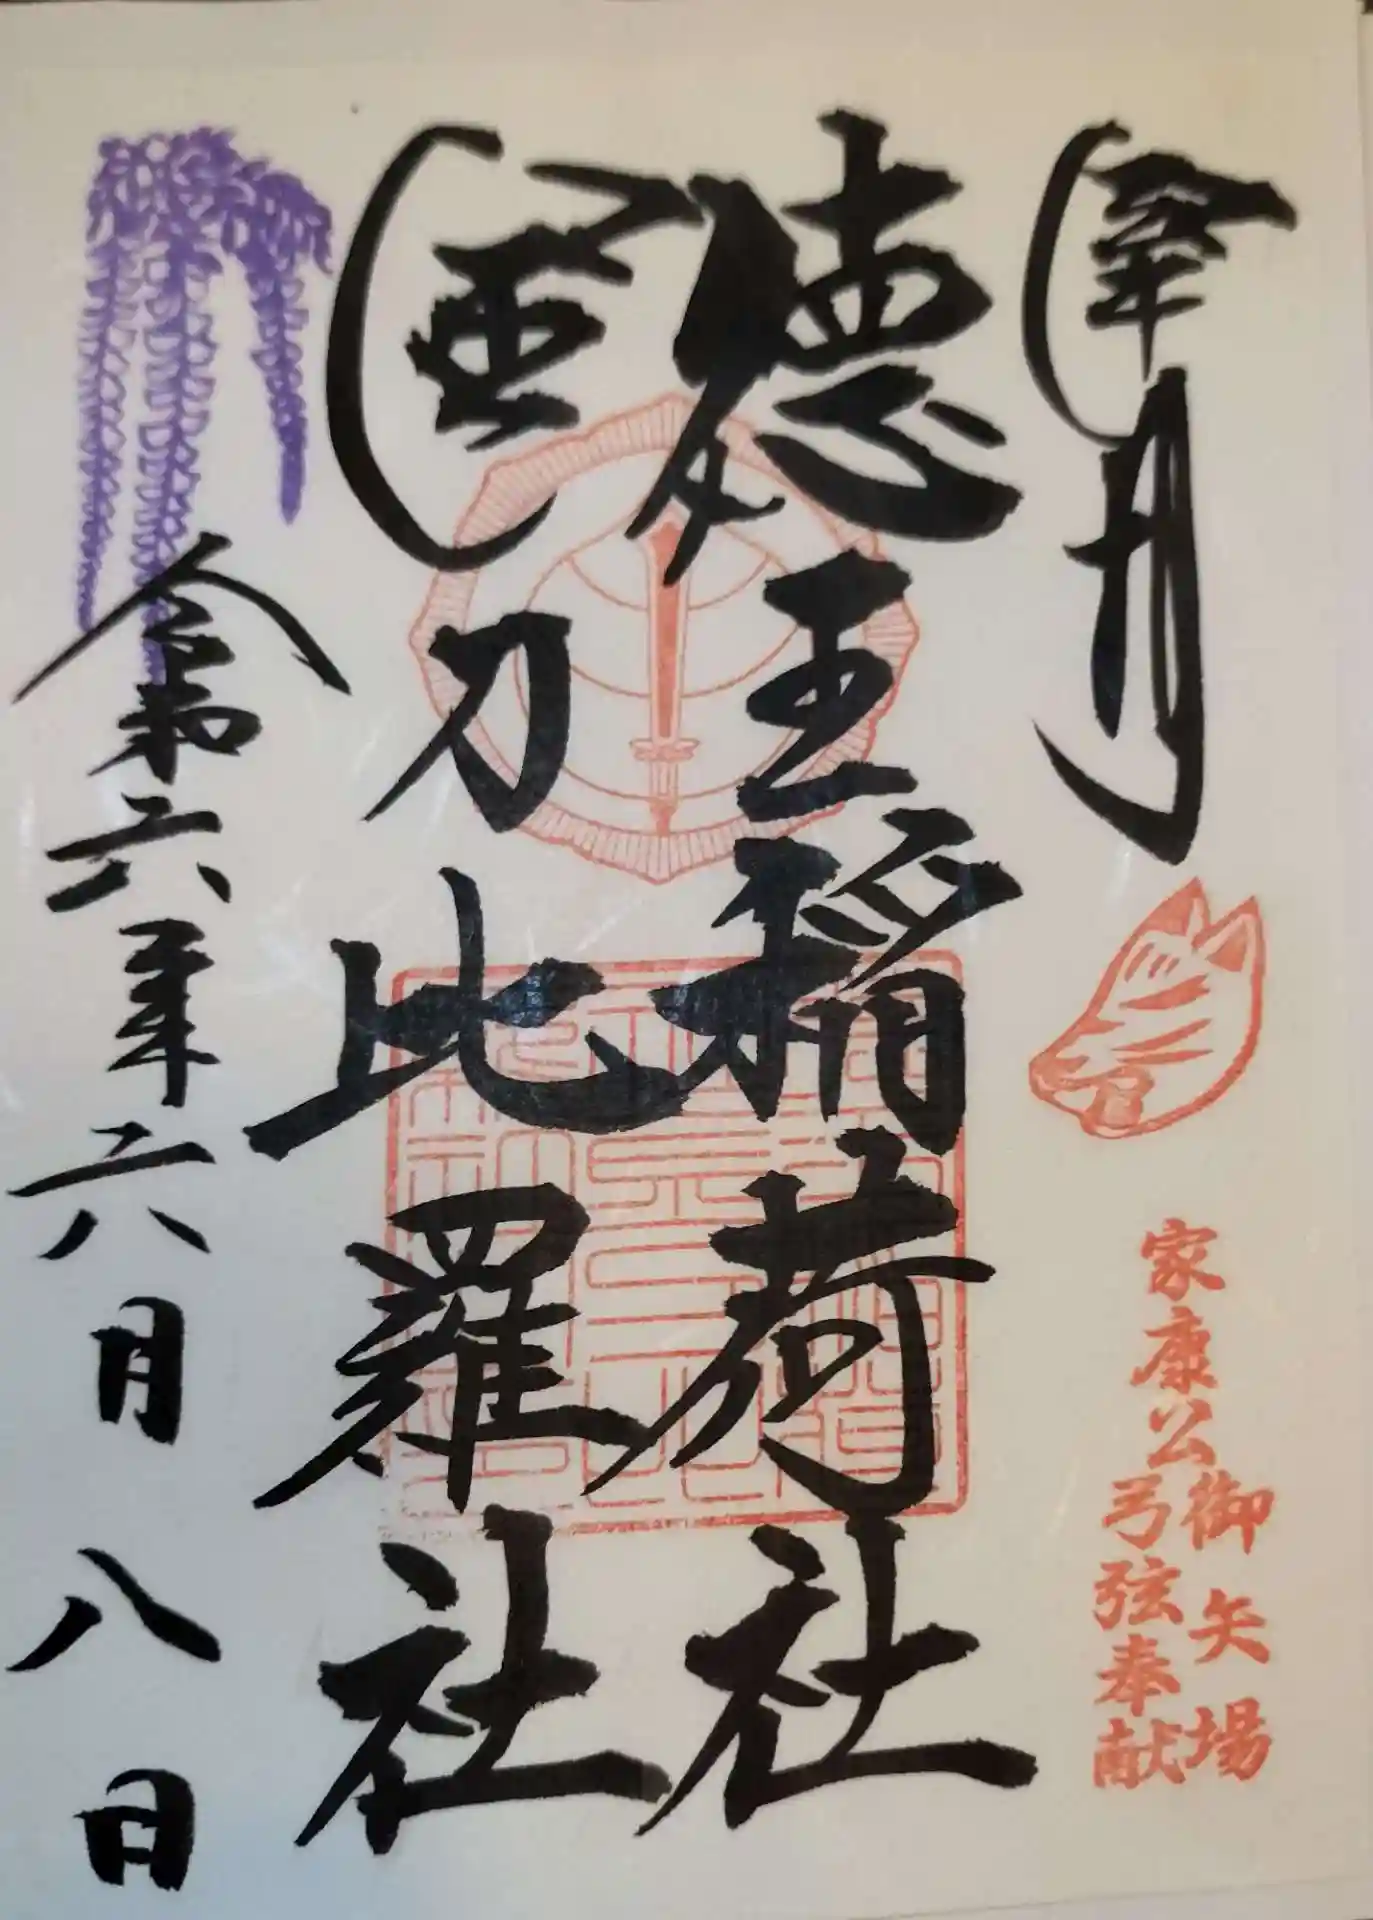 徳王稲荷社
金刀比羅社
令和六年六月八日
家康公
御矢場
弓弦奉献